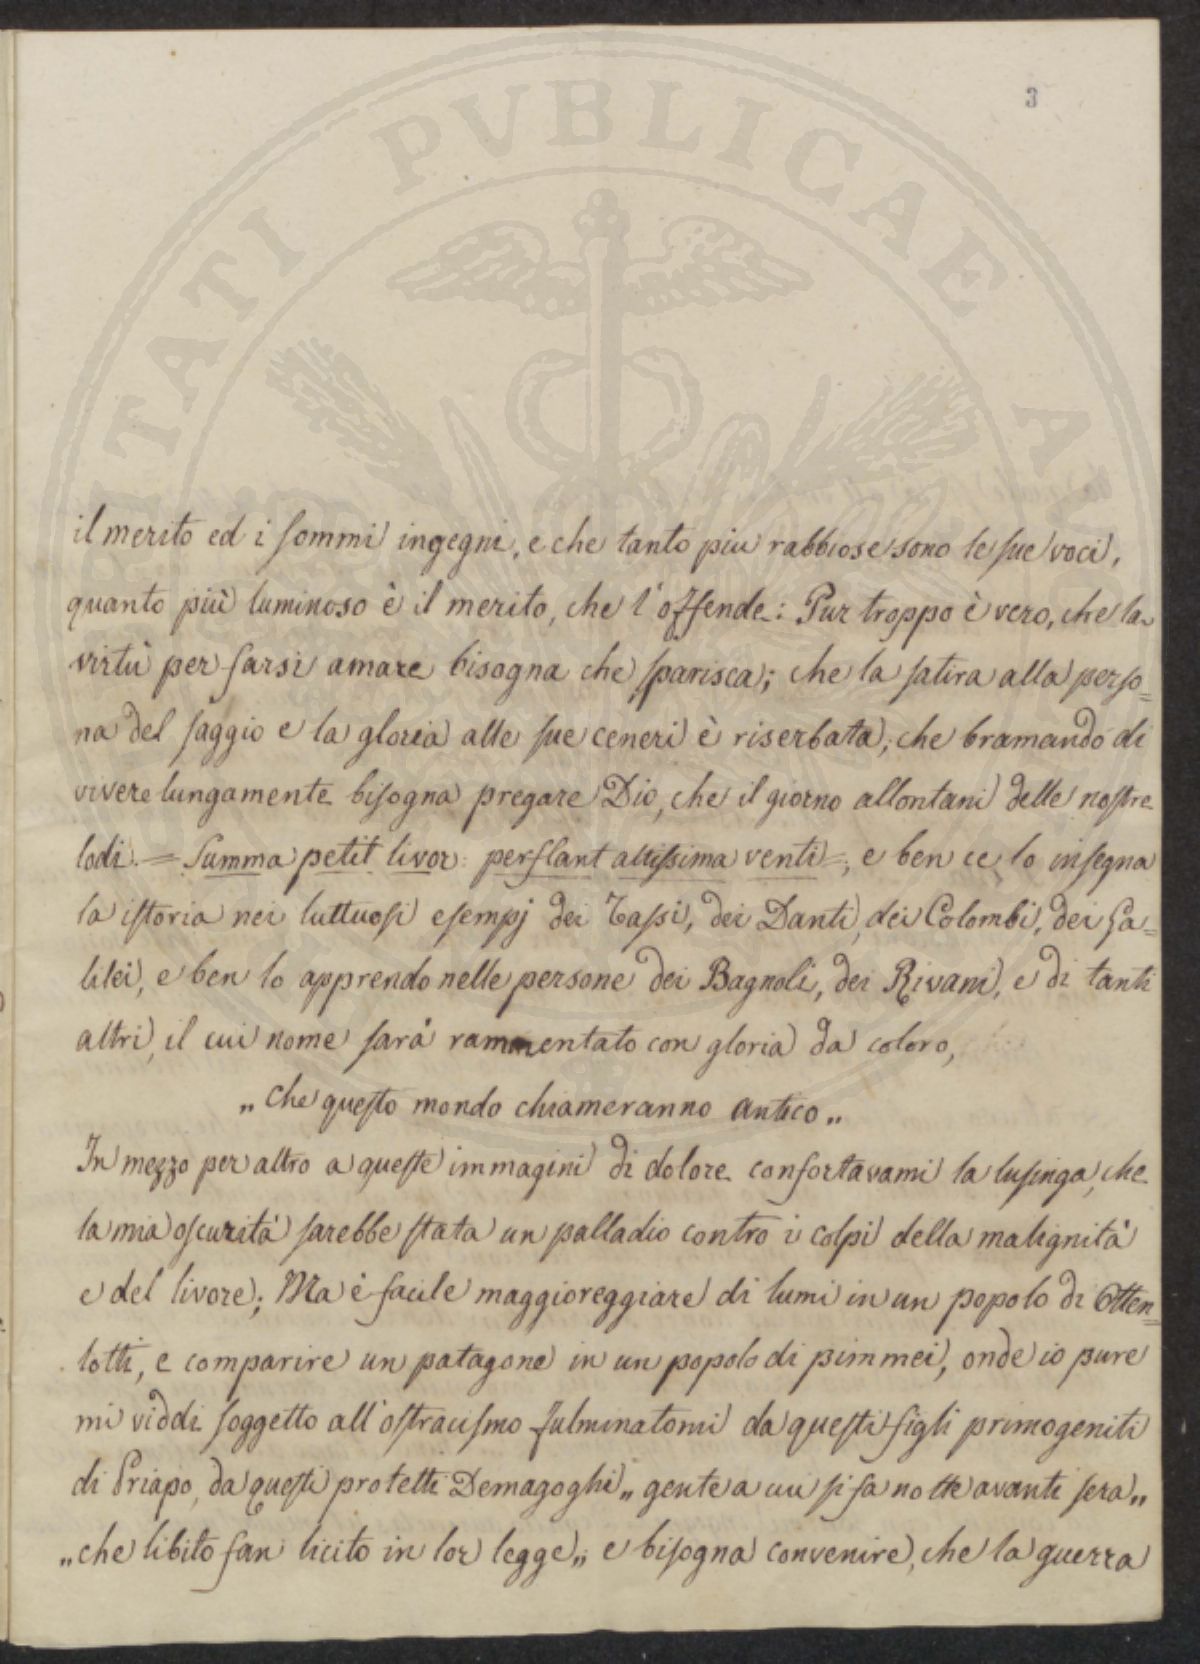 3
UTILITATI PVBLICAE
il merito ed i sommi ingegni, e che tanto piu rabbiose sono le sue voci,
quanto più luminoso è il merito, che l'offende: Pur troppo è vero, che la
virtù per farsi amare bisogna che sparisca; che la satira alla perso=
na del saggio e la gloria alle sue ceneri è riserbata; che bramando di
vivere lungamente bisogna pregare Dio, che il giorno allontani delle nostre
lodi. = Summa petit livor: perflant altissima venti =, e ben ce lo insegna
la istoria nei luttuosi esempj dei Tassi, dei Danti, dei Colombi, dei Ga=
lilei, e ben lo apprendo nelle persone dei Bagnoli, dei Rivani, e di tanti
altri, il cui nome sarà rammentato con gloria da coloro,
„ che questo mondo chiameranno antico „
In mezzo per altro a queste immagini di dolore confortavami la lusinga, che
la mia oscurità sarebbe stata un palladio contro i colpi della malignità
e del livore; Ma è facile maggioreggiare di lumi in un popolo di Otten=
totti, e comparire un patagone in un popolo di pimmei, onde io pure
mi viddi soggetto all'ostracismo fulminatomi da questi figli primogeniti
di Priapo, da questi protetti Demagoghi „ gente a cui si fa notte avanti sera „
„ che libito fan licito in lor legge „; e bisogna convenire, che la guerra